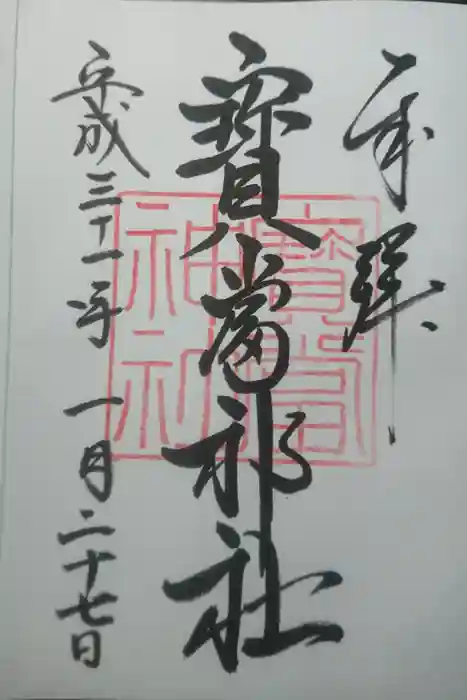 奉拝
寳當神社
平成三十一年 一月二十七日
寳當神社